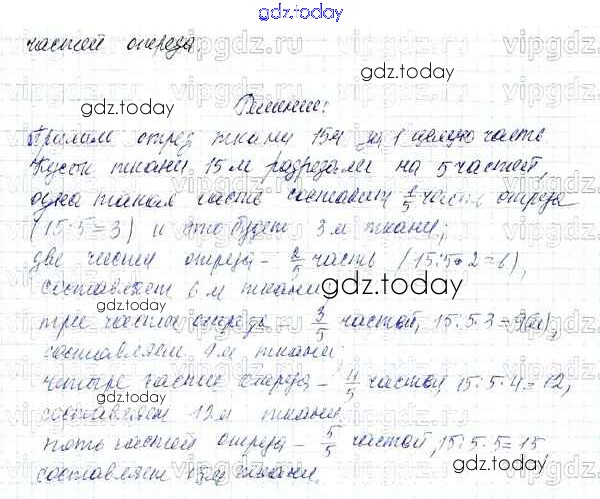 gdz.today
частей отреза.
gdz.today
gdz.today
Решение:
Примем отрез ткани 15м за 1 целую часть.
Кусок ткани 15 м разрезали на 5 частей,
одна такая часть составит 1/5 часть отреза
(15:5=3) и это будет 3 м ткани;
две части отреза – 2/5 часть (15:5·2=6),
составляет 6 м ткани;
gdz.today
gdz.today
три части отреза – 3/5 частей, 15:5·3=9(м),
составляет 9м ткани;
четыре части отреза – 4/5 частей, 15:5·4=12,
составляет 12м ткани;
пять частей отреза – 5/5 частей, 15:5·5=15
составляет 15м ткани.
gdz.today
gdz.today